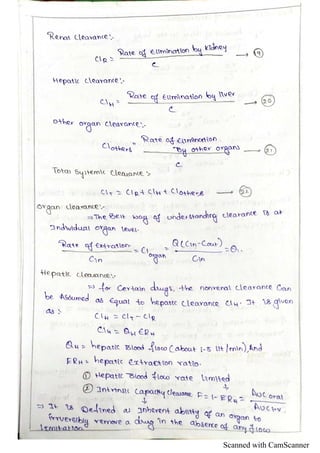 Renal Clearance:-
ClR = Rate of Elimination by kidney / C → (19)
Hepatic Clearance:-
ClH = Rate of Elimination by liver / C → (20)
Other organ Clearance:-
Clothers = Rate of Elimination By other organs / C → (21)
Total Systemic Clearance :-
ClT = ClR + ClH + Clothers → (22)
Organ clearance:-
⇒ The Best way of understanding clearance is at
Individual organ level.
Rate of Extration / Cin = Cl organ = Q(Cin-Cout) / Cin = Q..
Hepatic clearance:-
⇒ for Certain drugs, the nonrenal clearance Can
be Assumed as equal to hepatic clearance ClH. It is given
as :-
ClH = ClT - ClR
ClH = QH ERH
QH = hepatic Blood flow (about 1.5 lit/min), And
ERH = hepatic Extraction ratio.
① Hepatic Blood flow rate limited
② Intrinsic Capacity clearance F = 1 - ERH = AUC oral / AUC i.v.
⇒ It is Defined as Inherent ability of an organ to
irreversibly remove a drug in the absence of any flow
limitation
Scanned with CamScanner